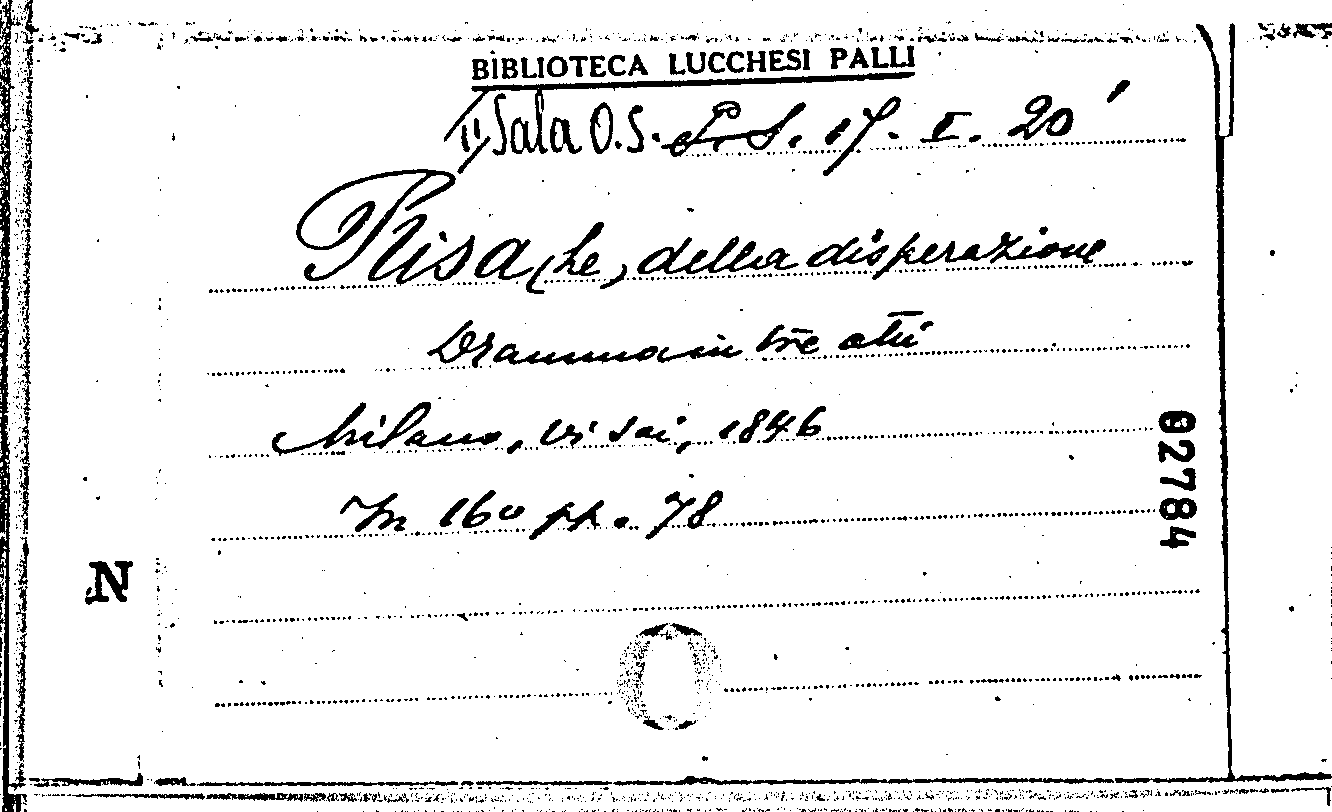 BIBLIOTECA LUCCHESI PALLI
II Sala O.S. P.S. 17. I. 20'
Risa (Le) della disperazione
Dramma in tre atti
Milano, Visai, 1846
In 16º pp. 78
02784
N